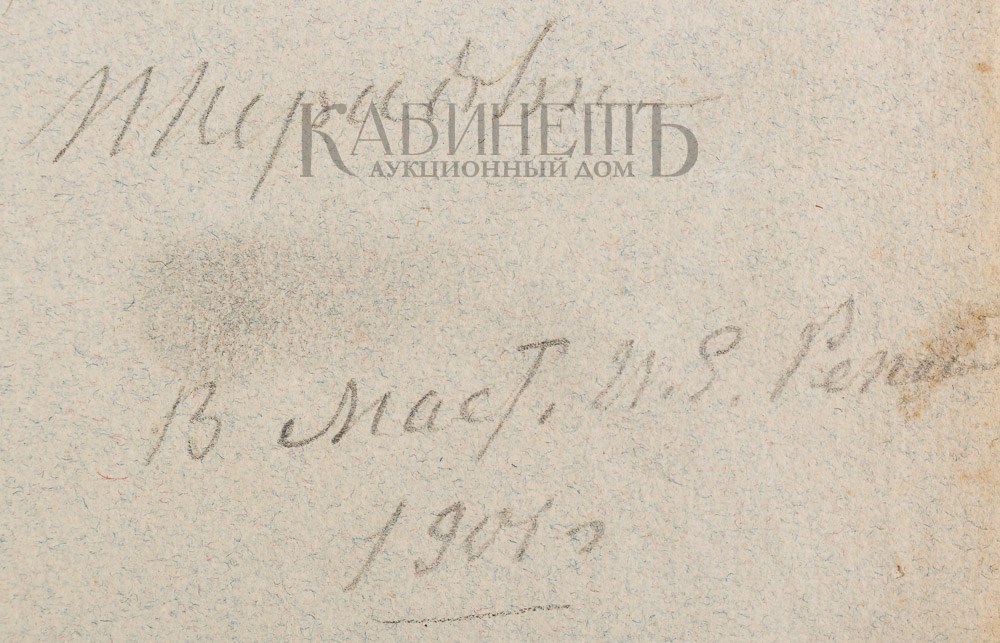 КАБИНЕТЪ
АУКЦИОННЫЙ ДОМ
В маст. И. Е. Репина
1901 г